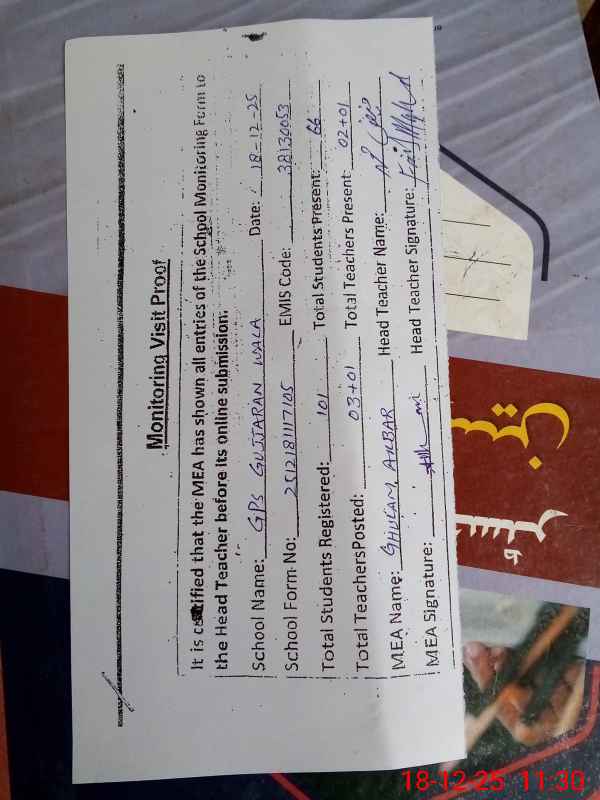 Monitoring Visit Proof
It is certified that the MEA has shown all entries of the School Monitoring Form to
the Head Teacher before its online submission.
School Name: GPS GUJJARAN WALA Date: 18-12-25
School Form No: 2512181117105 EMIS Code: 38130053
Total Students Registered: 101 Total Students Present: 66
Total TeachersPosted: 03+01 Total Teachers Present: 02+01
MEA Name: GHULAM AKBAR Head Teacher Name:
MEA Signature: Head Teacher Signature:
18-12-25 11:30